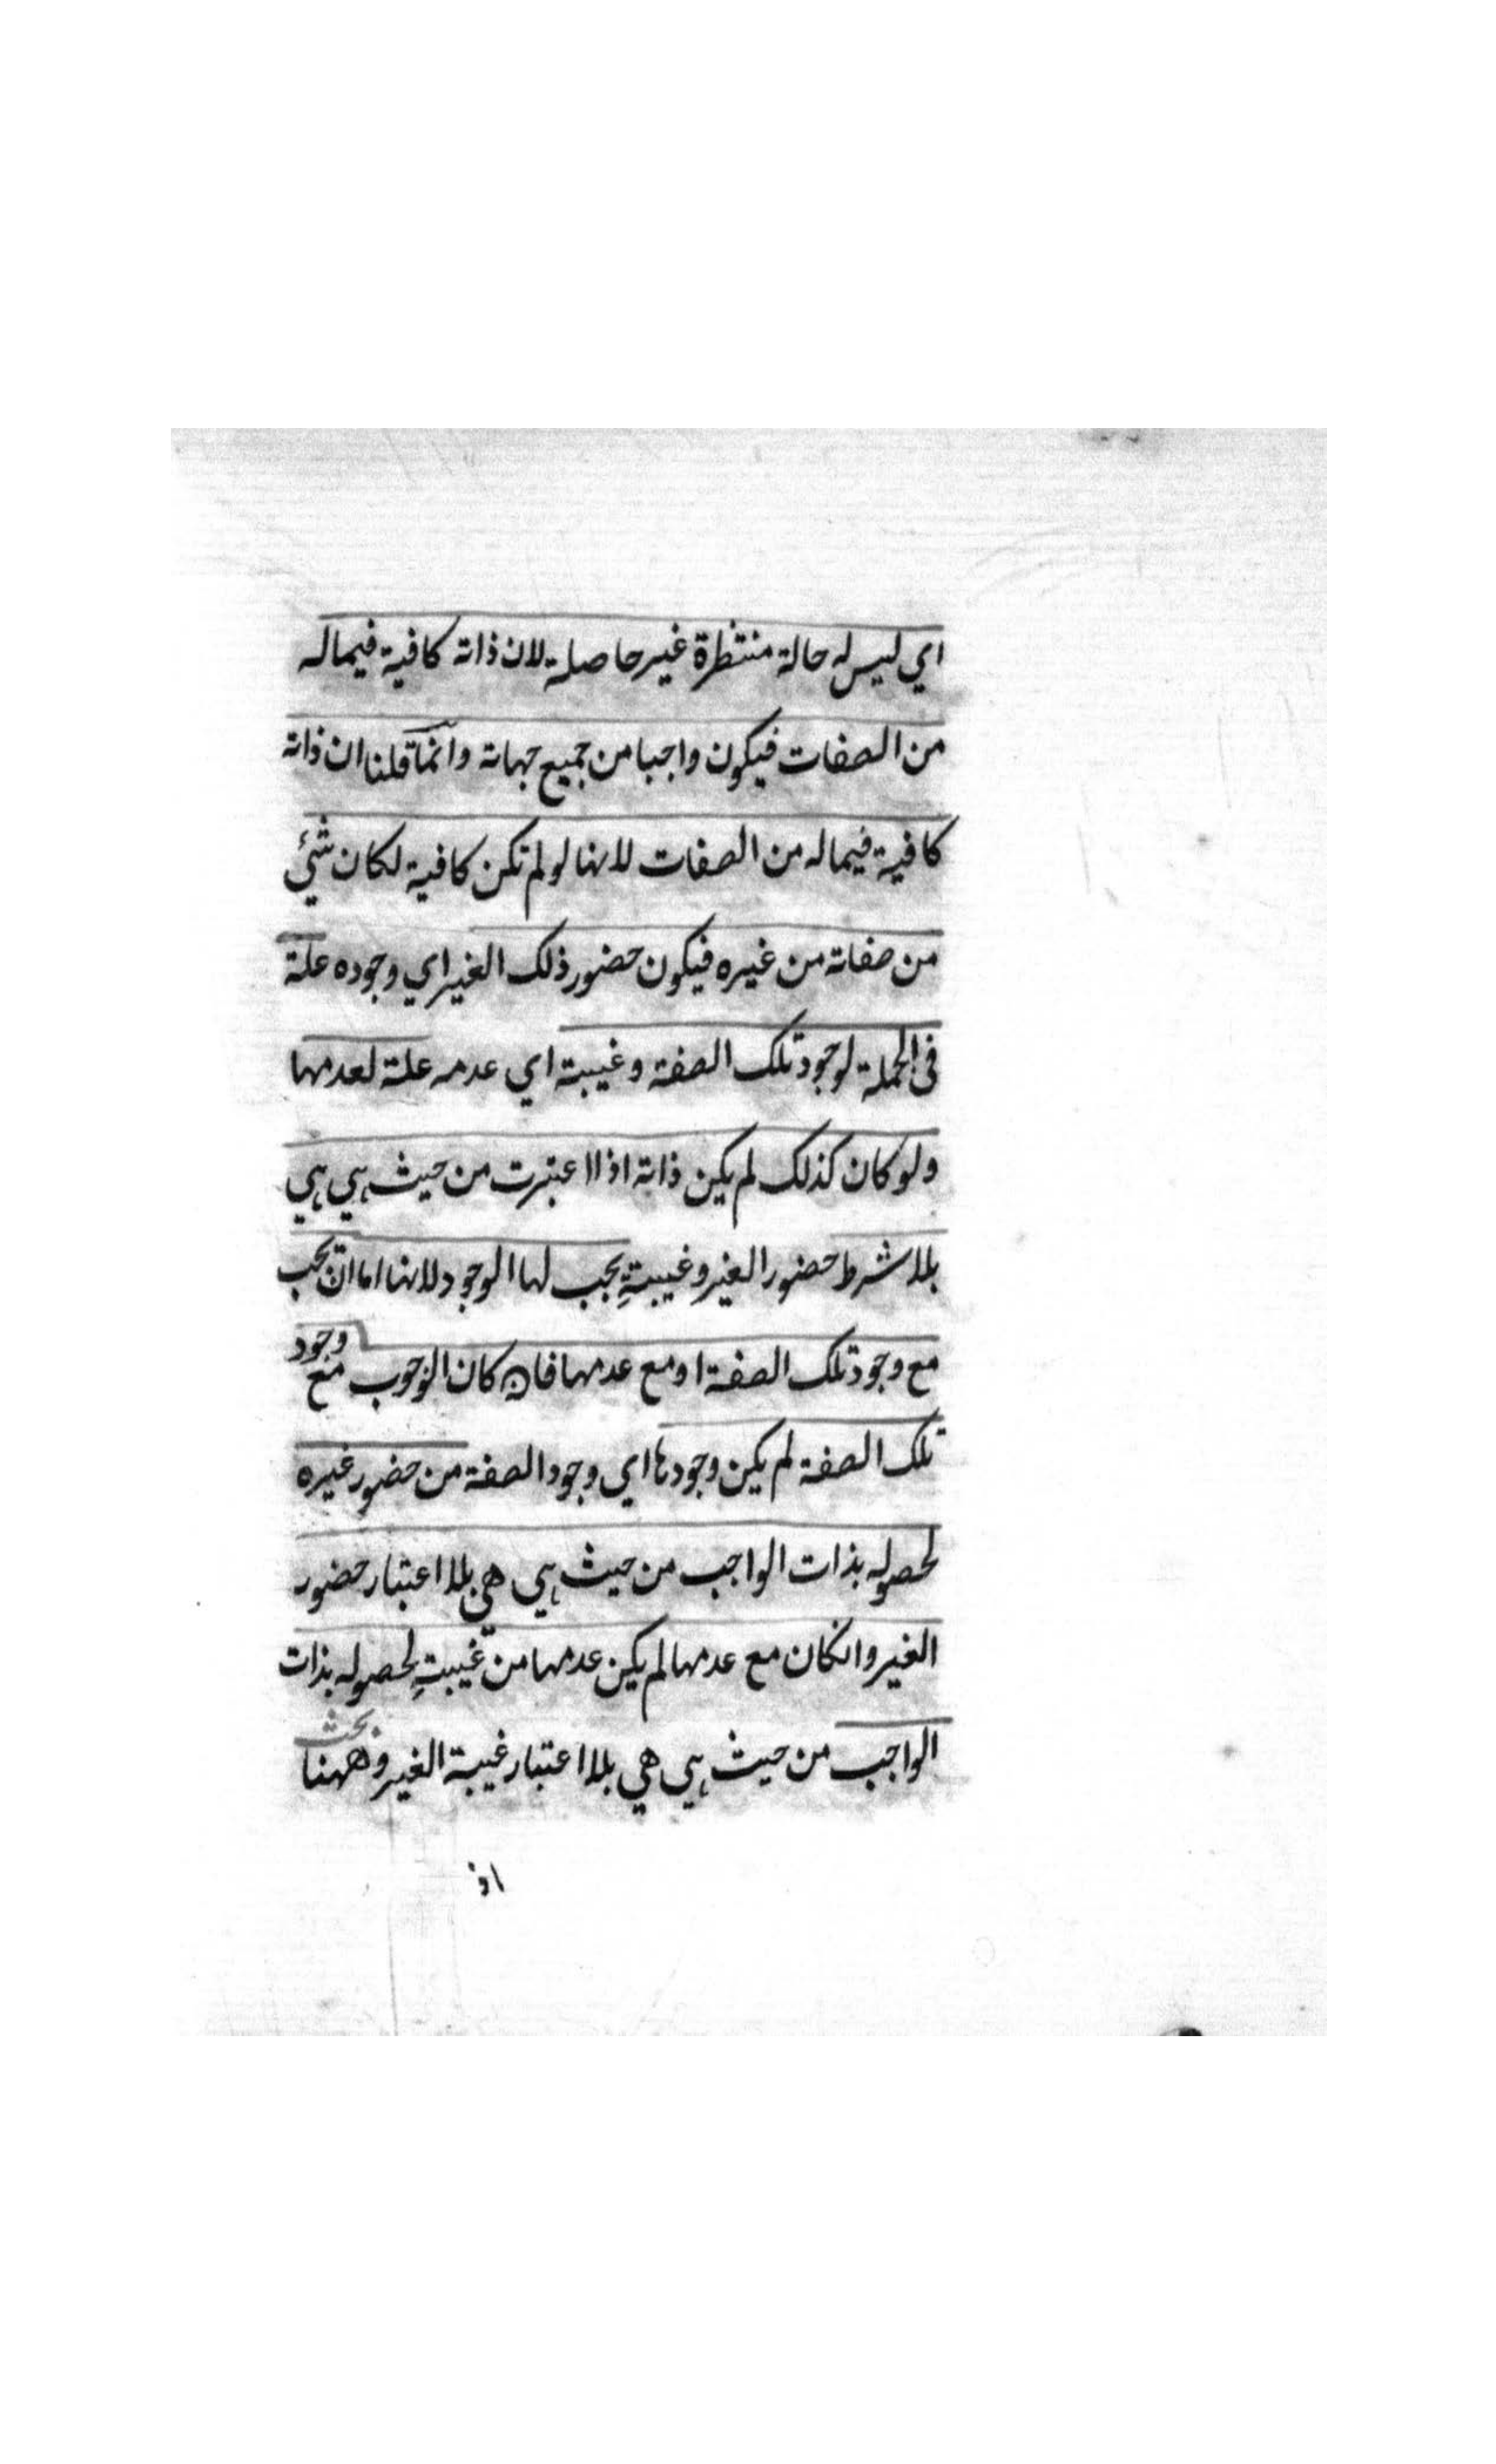 اي ليس له حالة منتظرة غير حاصلة لان ذاته كافية فيما له
من الصفات فيكون واجبا من جميع جهاته وانما قلنا ان ذاته
كافية فيما له من الصفات لانها لو لم تكن كافية لكان شئ
من صفاته من غيره فيكون حضور ذلك الغير اي وجوده علة
فى الجملة لوجود تلك الصفة وغيبته اي عدمه علة لعدمها
ولو كان كذلك لم يكن ذاته اذا اعتبرت من حيث هي هي
بلا شرط حضور الغير وغيبته يجب لها الوجود لانها اما ان تجب
مع وجود تلك الصفة او مع عدمها فان كان الوجوب مع وجود
تلك الصفة لم يكن وجودها اي وجود الصفة من حضور غيره
لحصوله بذات الواجب من حيث هي هي بلا اعتبار حضور
الغير وانكان مع عدمها لم يكن عدمها من غيبته لحصوله بذات
الواجب من حيث هي هي بلا اعتبار غيبة الغير وههنا بحث
اذ